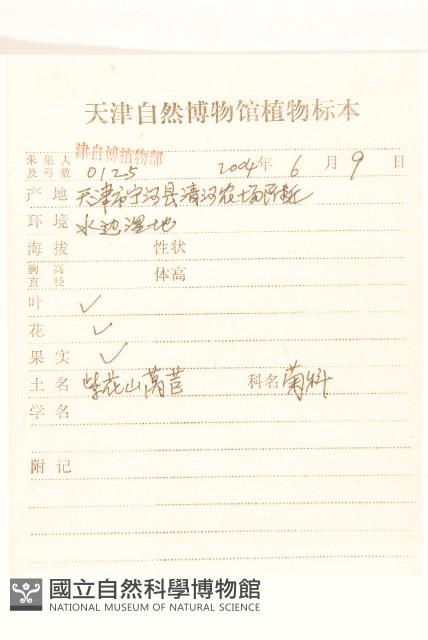 天津自然博物馆植物标本
采集人及号数 津自博植物部 0125 2004年 6月 9日
产地 天津市宁河县清河农场附近
环境 水边湿地
海拔 性状
胸高直径 体高
叶 ✓
花 ✓
果实 ✓
土名 紫花山莴苣 科名 菊科
学名
附记
國立自然科學博物館
NATIONAL MUSEUM OF NATURAL SCIENCE